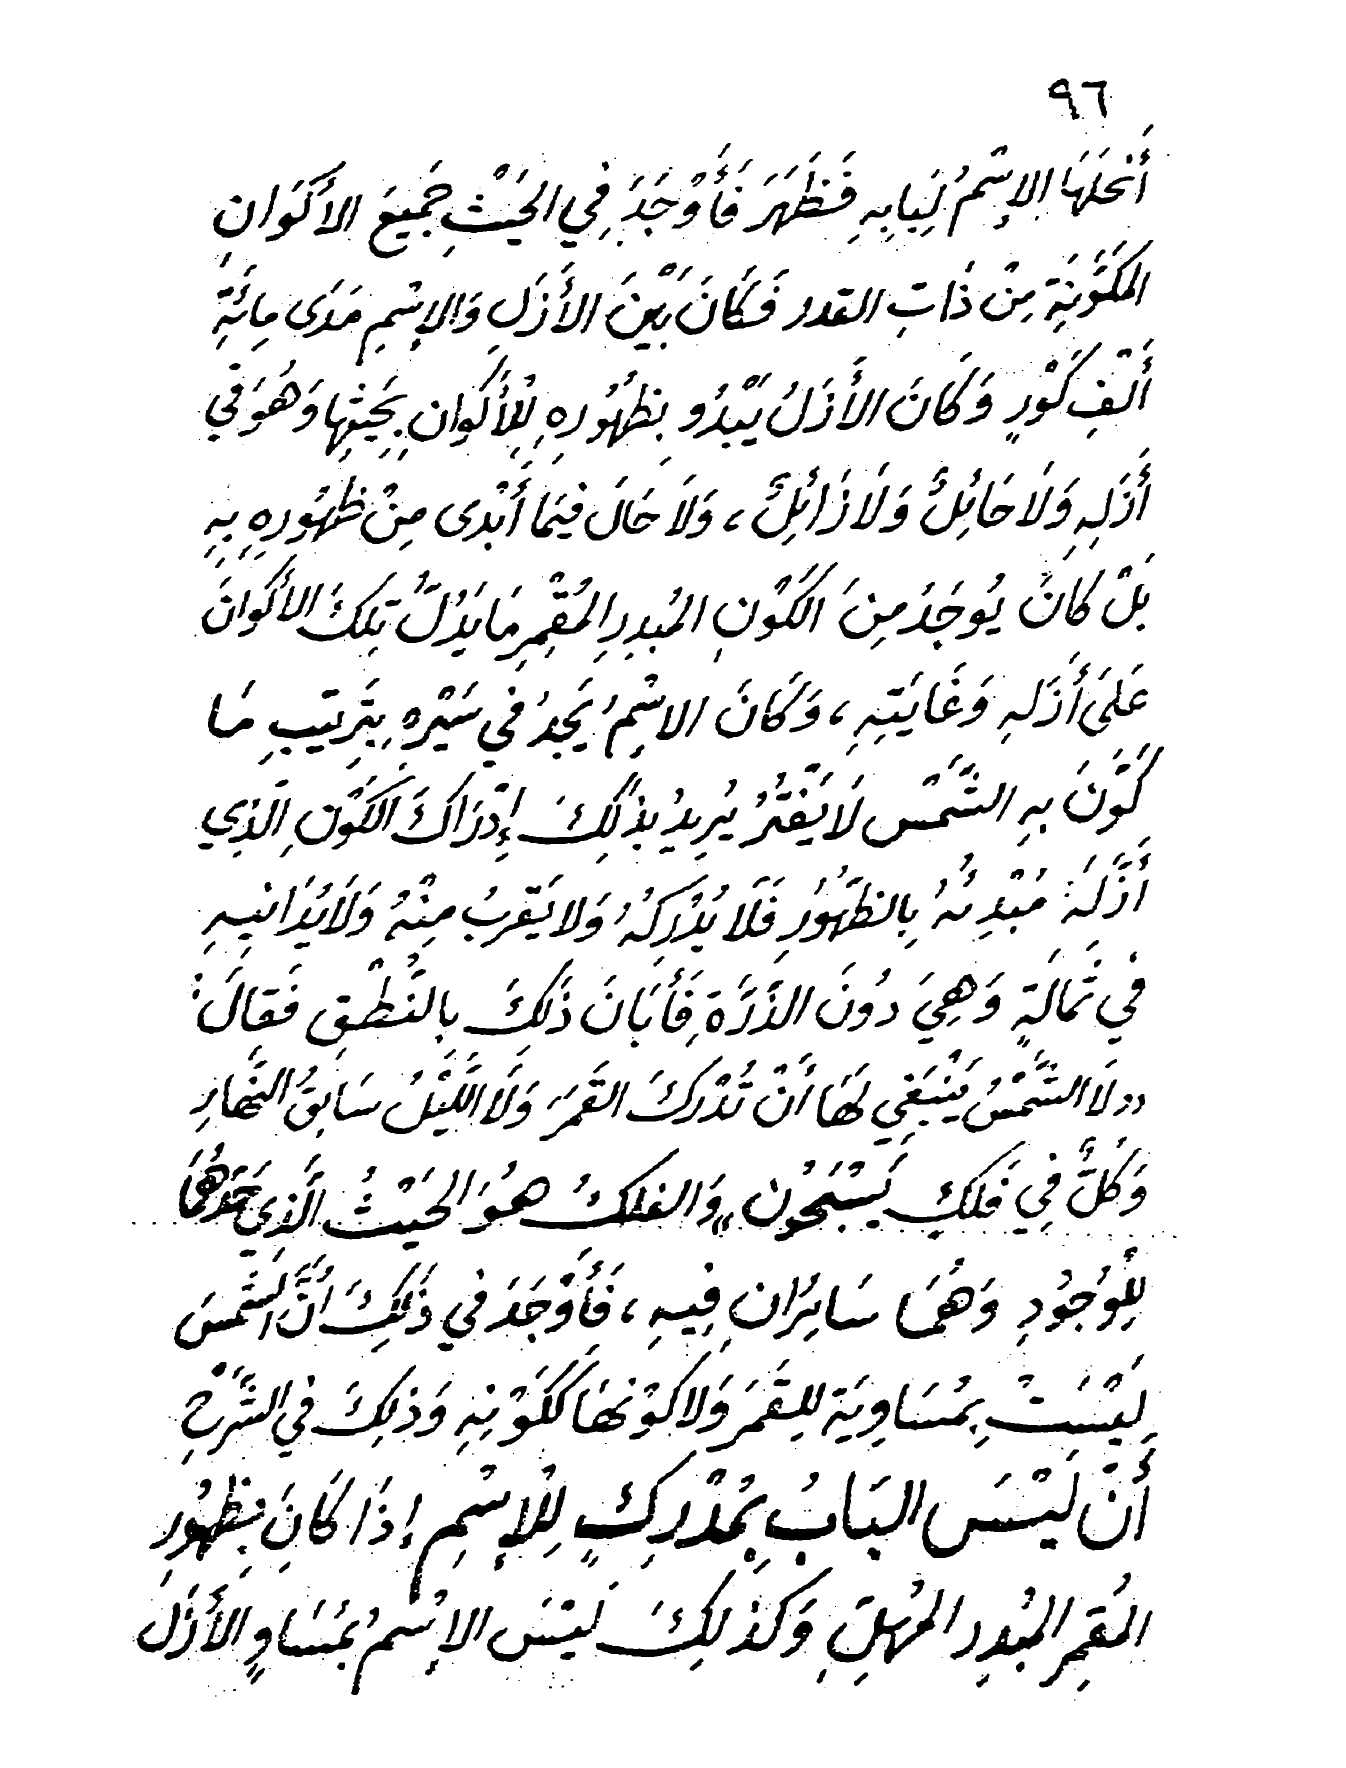 ٩٦
أَنْحَلَهَا الإِسْمُ لِبَابِهِ فَظَهَرَ فَأَوْجَدَ فِي الحَيْثِ جَمِيعَ الأَكْوَانِ
المُكَوَّنَةِ مِنْ ذَاتِ القدر فَكَانَ بَيْنَ الأَزَلِ وَالإِسْمِ مَدَى مِائَةِ
أَلْفِ كَوْرٍ وَكَانَ الأَزَلُ يَبْدُو بِظُهُورِهِ لِلأَكْوانِ بِحَيْثِهَا وَهُوَ فِي
أَزَلِهِ وَلَا حَائِلٌ وَلَا زَائِلٌ ، وَلَا حَالَ فِيمَا أَبْدَى مِنْ ظُهُورِهِ بِهِ
بَلْ كانَ يُوجَدُ مِنَ الكَوْنِ المُبْدِرِ المُقْمِرِ مَا يَدُلُّ تِلكَ الأَكْوانَ
عَلَى أَزَلِهِ وَغَايَتِهِ ، وَكَانَ الاسْمُ يَجِدُ فِي سَيْرِهِ بِتَرتِيبِ مَا
كَوَّنَ بِهِ الشَّمْسَ لَا يَفْتَرُ يُرِيدُ بِذَلِكَ إِدْرَاكَ الكَوْنِ الَّذِي
أَزَّلَهُ مُبْدِئُهُ بِالظُّهُورِ فَلَا يُدْرِكُهُ وَلا يَقْرُبُ مِنْهُ وَلَا يُدَانِيهِ
فِي ثَمَالَةٍ وَهِيَ دُونَ الذَّرَّةِ فَأَبَانَ ذَلِكَ بِالنُّطْقِ فَقالَ:
«لَا الشَّمْسُ يَنْبَغِي لَهَا أَنْ تُدْرِكَ القَمَرَ وَلَا اللَّيْلُ سَابِقُ النَّهَارِ
وَكُلٌّ فِي فَلَكٍ يَسْبَحُونَ» وَالفلكُ هُوَ الحَيْثُ الَّذِي حَدَّهُمَا
لِلْوُجُودِ وَهُمَا سَائِرَانِ فِيهِ ، فَأَوْجَدَ فِي ذَلِكَ أَنَّ الشَّمسَ
لَيْسَتْ بِمُسَاوِيَةٍ لِلقَمَرِ وَلا كَوْنهَا كَكَوْنِهِ وَذلِكَ فِي الشَّرْحِ
أَنْ لَيْسَ البَابُ بِمُدْرِكٍ لِلْإِسْمِ إِذَا كَانَ بِظهُورِ
المُقمِرِ المُبْدِرِ المُهِلِّ وَكَذلِكَ لَيْسَ الإِسْمُ بِمُسَاوٍ الأَزَلَ